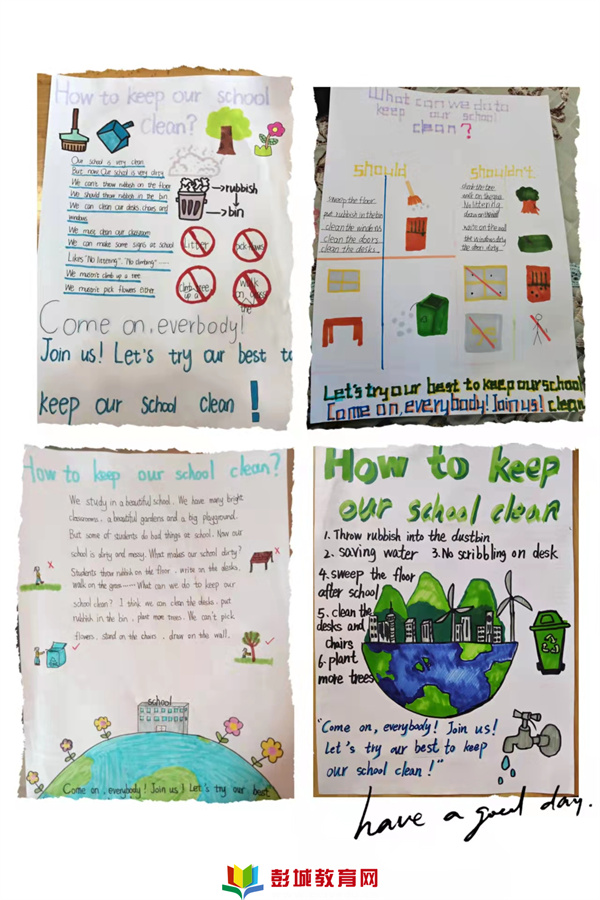 How to keep our school
clean?
Our school is very clean
But now Our school is very dirty
We can't throw rubbish on the floor
We should throw rubbish in the bin
We can clean our desks chairs and
windows
We must clean our classroom
We can make some signs at school
Likes "No listening". "No climbing" ······
We mustn't climb up a tree
We mustn't pick flowers either
→rubbish
→bin
Litter
pick flowers
climb tree
up a
walk
on grass
the
Come on, everbody!
Join us! Let's try our best to
keep our school clean !
What can we do to
keep our school
clean?
should
shouldn't
sweep the floor
put rubbish in the bin
clean the windows
clean the doors
clean the desks
No littering
draw on the wall
write on the wall
Let's try our best to keep our school
Come on, everybody! Join us! clean
How to keep our school clean?
We study in a beautiful school. We have many bright
classrooms, a beautiful gardens and a big playground.
But some of students do bad things at school. Now our
school is dirty and messy. What makes our school dirty?
Students throw rubbish on the floor, write on the desks,
walk on the grass ······ What can we do to keep our
school clean? I think we can clean the desks, put
rubbish in the bin, plant more trees. We can't pick
flowers, stand on the chairs, draw on the wall.
school
Come on, everybody! Join us! Let's try our best
How to keep
our school clean
1. Throw rubbish into the dustbin
2. saving water 3. No scribbling on desk
4. sweep the floor
after school
5. clean the
desks and
chairs
6. plant
more trees
"Come on, everybody! Join us!
Let's try our best to keep
our school clean!"
have a good day.
彭城教育网